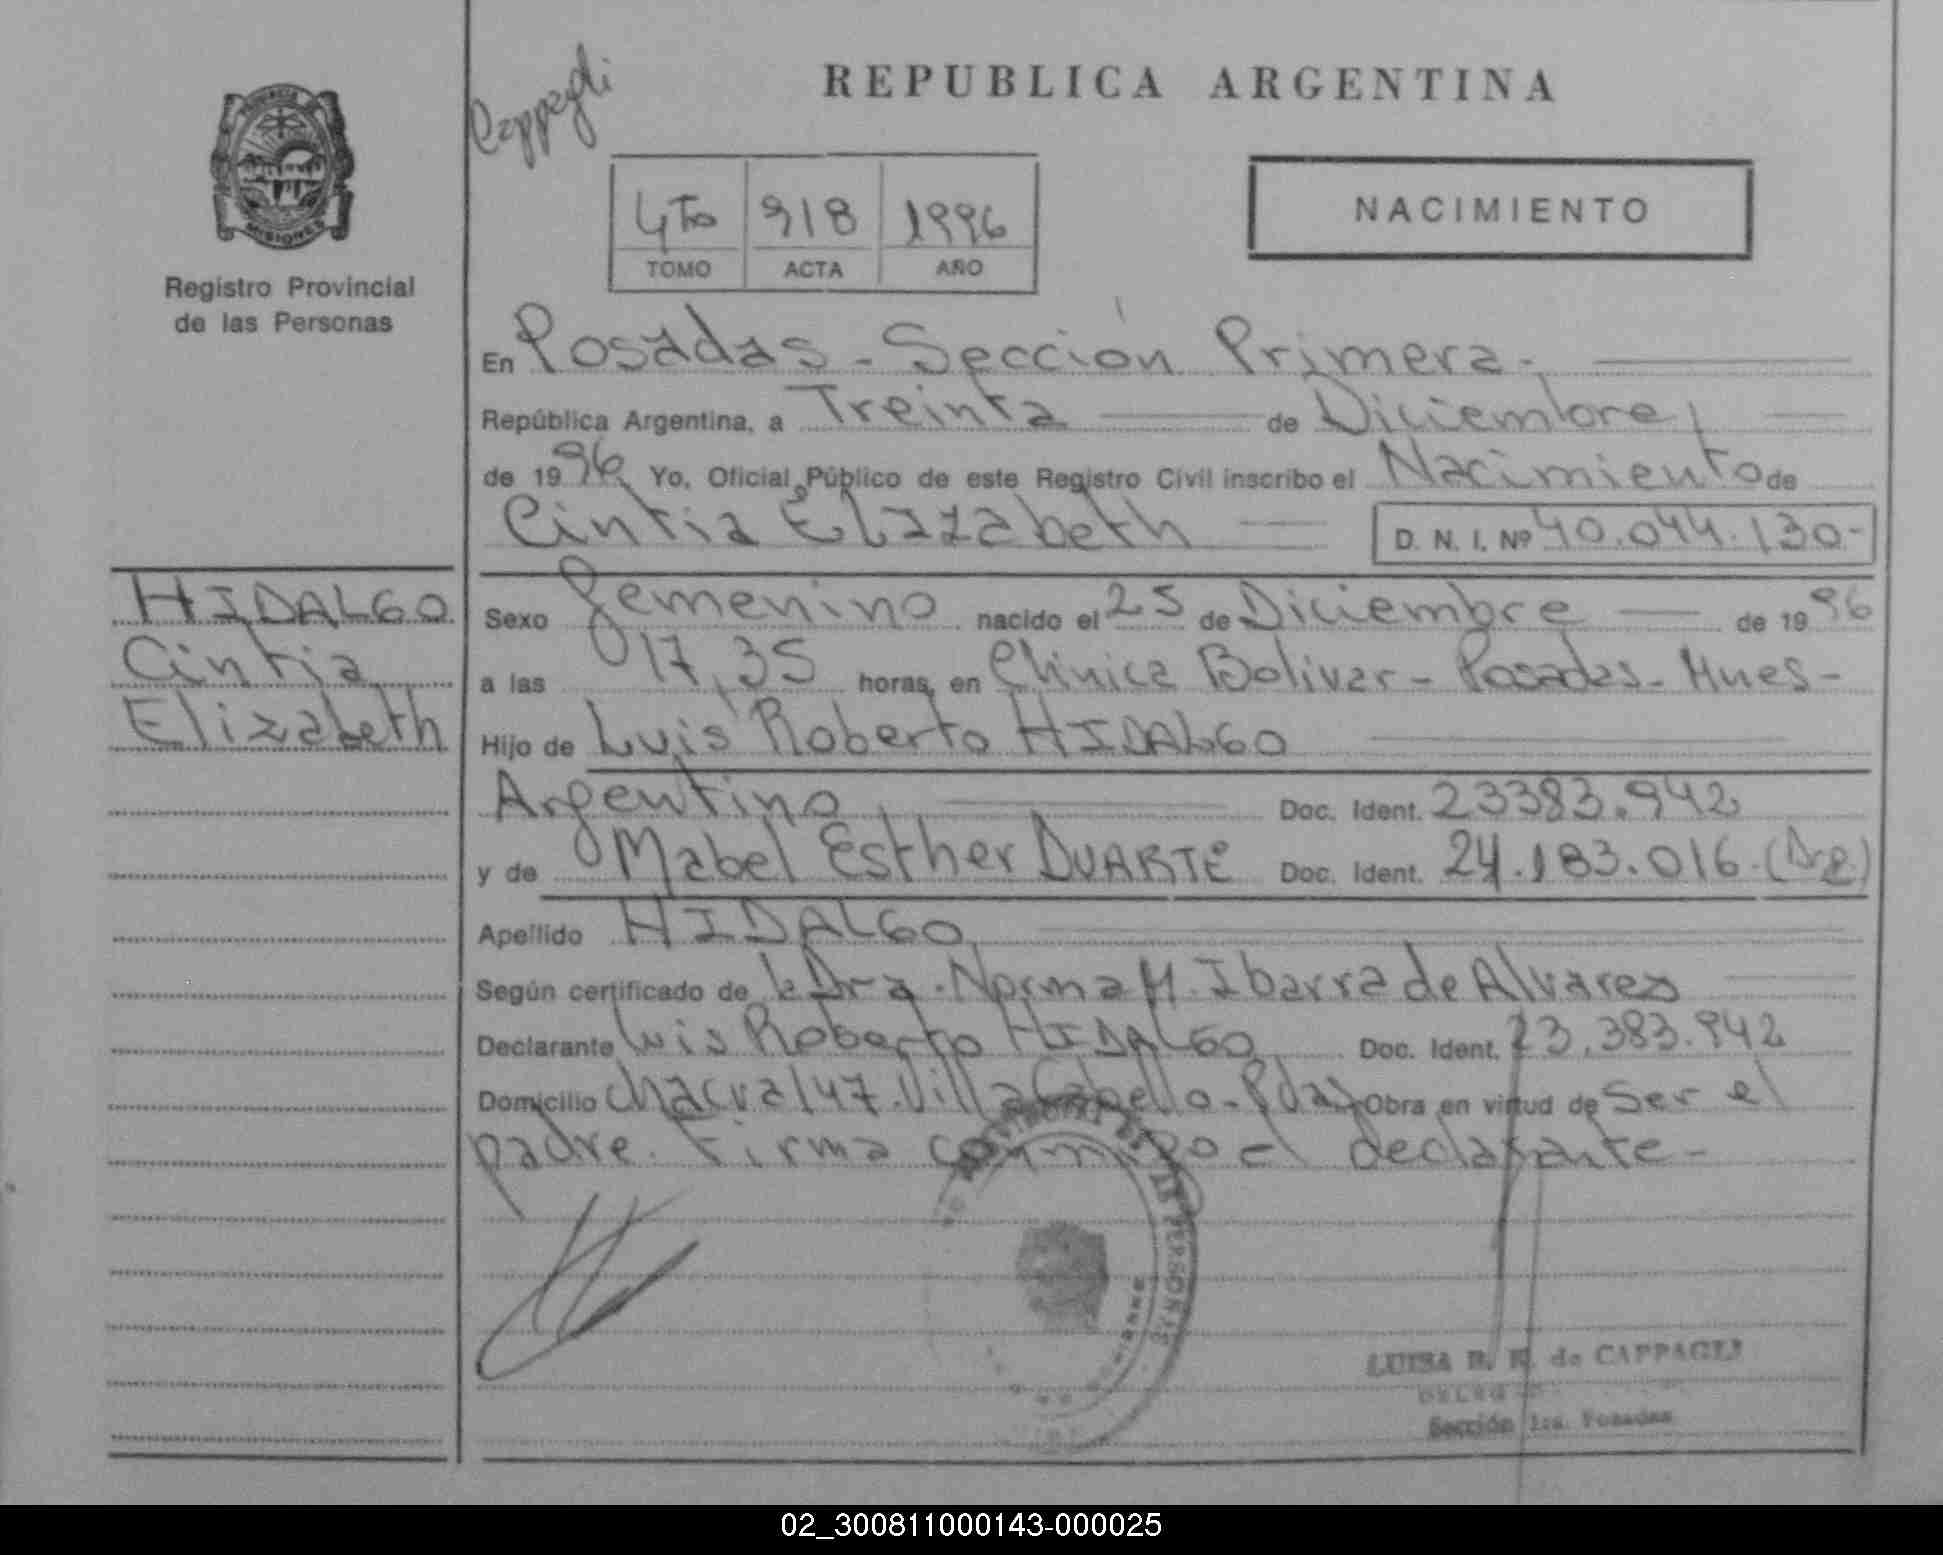 Cappagli
REPUBLICA ARGENTINA
MISIONES
Registro Provincial
de las Personas
4To 918 1996
TOMO ACTA AÑO
NACIMIENTO
En Posadas - Sección Primera -
República Argentina, a Treinta de Diciembre,
de 1996 Yo, Oficial Público de este Registro Civil inscribo el Nacimiento de
Cintia Elizabeth D. N. I. Nº 40.044.130-
HIDALGO
Cintia
Elizabeth
Sexo Femenino nacido el 25 de Diciembre de 1996
a las 17,35 horas, en Clínica Bolivar - Posadas - Mnes -
Hijo de Luis Roberto HIDALGO
Argentino Doc. Ident. 23383.942
y de Mabel Esther DUARTE Doc. Ident. 24.183.016. (Arg)
Apellido HIDALGO
Según certificado de la Dra. Norma M. Ibarra de Alvarez
Declarante Luis Roberto HIDALGO Doc. Ident. 23.383.942
Domicilio Chacra 147. Villa Cabello - Pdas Obra en virtud de Ser el
padre. Firma conmigo el declarante -
LUISA de CAPPAGLI
Sección 1ra. Posadas
02_300811000143-000025